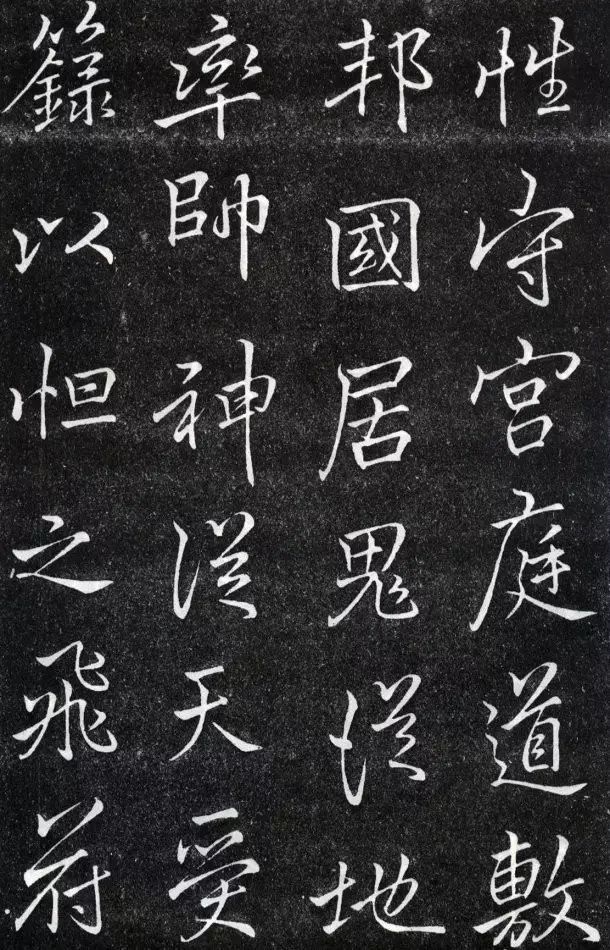 性守宮庭道敷
邦國居鬼從地
率帥神從天受
籙以怛之飛符